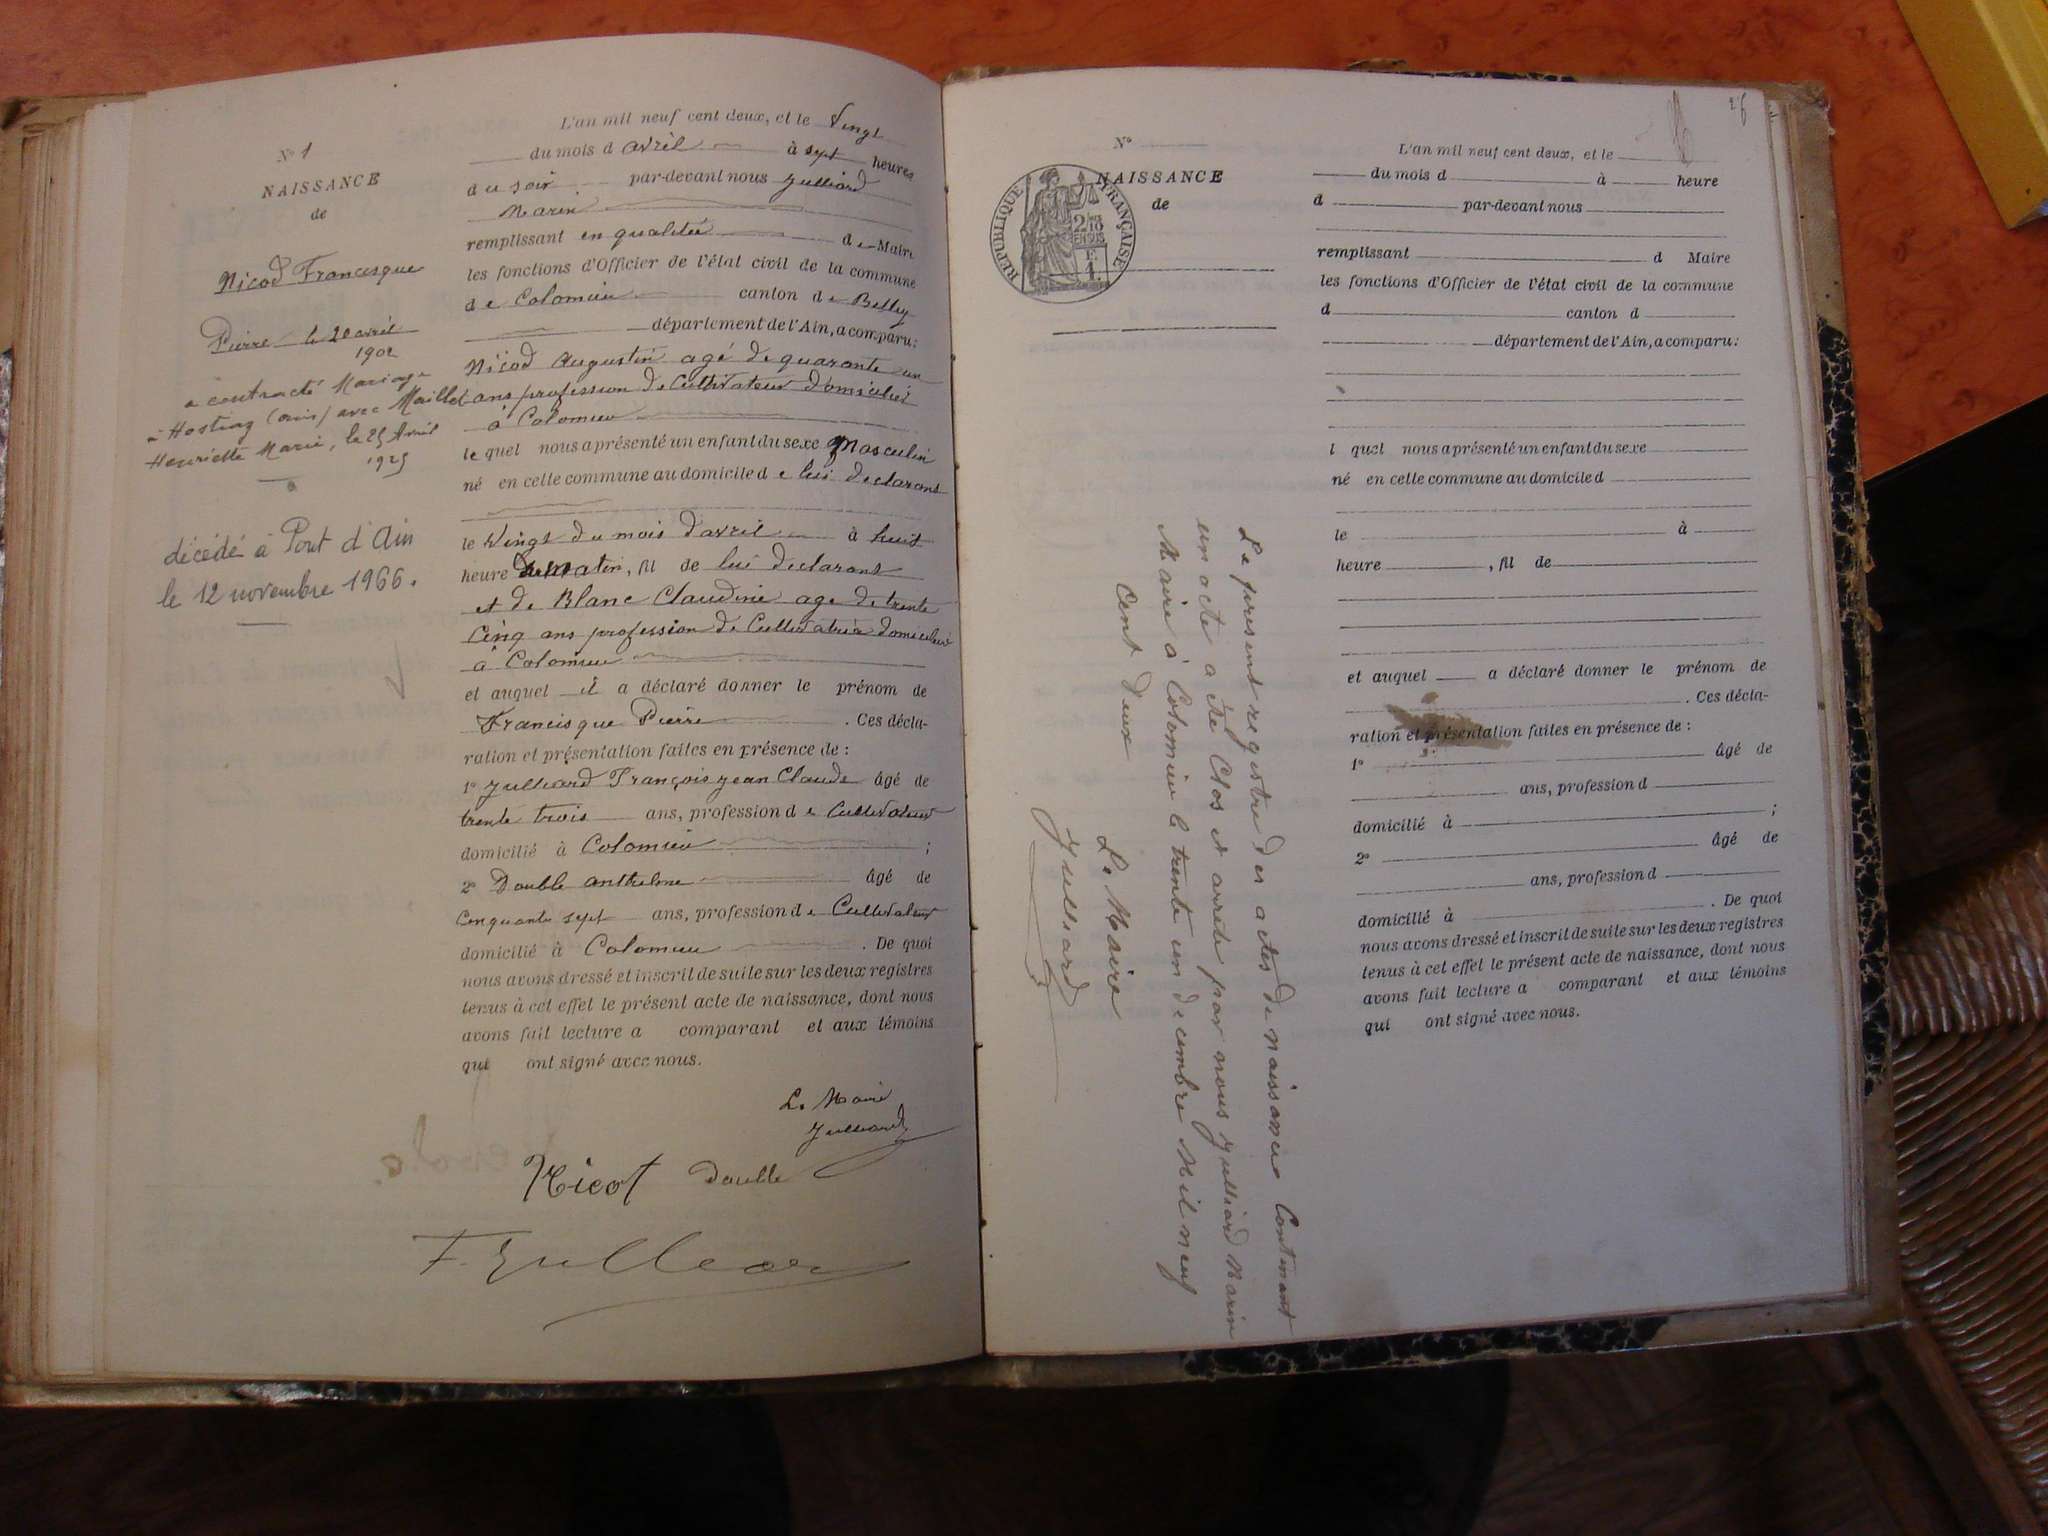 N° 1
NAISSANCE
de
Nicod Francisque
Pierre le 20 avril
1902
a contracté Mariage
à Hostiaz (ain) avec Maillet
Henriette Marie, le 25 Avril
1925
décédé à Pont d'Ain
le 12 novembre 1966.
L'an mil neuf cent deux, et le Vingt
du mois d avril à sept heures
du soir par-devant nous Julliard
Marin
remplissant en qualitée de Maire
les fonctions d'Officier de l'état civil de la commune
de Colomieu canton de Belley
département de l'Ain, a comparu:
Nicod Augustin agé de quarante un
ans profession de Cultivateur domicilié
à Colomieu
lequel nous a présenté un enfant du sexe Masculin
né en cette commune au domicile de lui declarant
le Vingt du mois d'avril à huit
heure du Matin, fil de lui declarant
et de Blanc Claudine age de trente
Cinq ans profession de Cultivatrice domiciliée
à Colomieu
et auquel il a déclaré donner le prénom de
Francisque Pierre . Ces décla-
ration et présentation faites en présence de :
1° Julliard François Jean Claude âgé de
trente trois ans, profession de Cultivateur
domicilié à Colomieu ;
2° Double anthelme âgé de
Cinquante sept ans, profession de Cultivateur
domicilié à Colomieu . De quoi
nous avons dressé et inscrit de suite sur les deux registres
tenus à cet effet le présent acte de naissance, dont nous
avons fait lecture a comparant et aux témoins
qui ont signé avec nous.
Le Maire
Julliard
Nicot Double
F. Julliard
N°
NAISSANCE
de
RÉPUBLIQUE FRANÇAISE
2/10
EN SUS
F.
1.
Le present registre des actes de naissances Contenant
un acte a été Clos et arrêté par nous Julliard Marin
Maire à Colomieu le trente un decembre Mil neuf
Cent deux
Le Maire
Julliard
L'an mil neuf cent deux, et le
du mois d à heure
d par-devant nous
remplissant d Maire
les fonctions d'Officier de l'état civil de la commune
d canton d
département de l'Ain, a comparu:
l quel nous a présenté un enfant du sexe
né en cette commune au domicile d
le à
heure , fil de
et auquel a déclaré donner le prénom de
. Ces décla-
ration et présentation faites en présence de :
1° âgé de
ans, profession d
domicilié à ;
2° âgé de
ans, profession d
domicilié à . De quoi
nous avons dressé et inscrit de suite sur les deux registres
tenus à cet effet le présent acte de naissance, dont nous
avons fait lecture a comparant et aux témoins
qui ont signé avec nous.